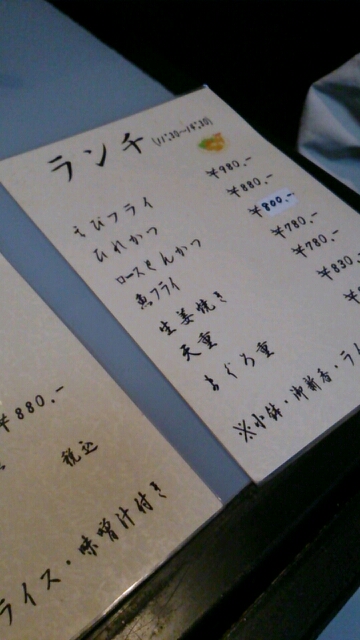 ランチ
えびフライ ¥980.-
ひれかつ ¥880.-
ロースとんかつ ¥800.-
魚フライ ¥780.-
生姜焼き ¥780.-
天重 ¥830.-
まぐろ重
※小鉢・御新香・ライ
¥880.-
税込
ライス・味噌汁付き